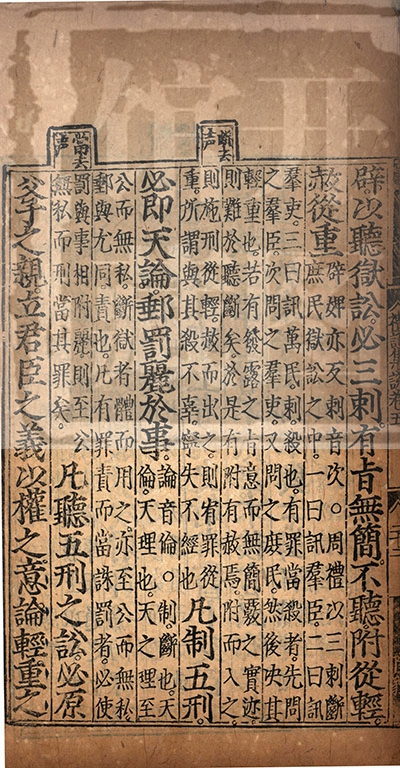 斷去声
當去声
辟以聽獄訟。必三刺。有旨無簡。不聽。附從輕。
赦從重。辟婢亦反刺音次。○周禮以三刺斷
庶民獄訟之中。一曰訊羣臣。二曰訊
羣吏。三曰訊萬民。刺殺也。有罪當殺者。先問
之羣臣。次問之羣吏。又問之庶民。然後決其
輕重也。若有發露之旨意。而無簡覈之實迹。
則難於聽斷矣。於是有附有赦焉。附而入之。
則施刑從輕。赦而出之。則宥罪從
重。所謂與其殺不辜。寧失不經也。凡制五刑。
必即天論。郵罰麗於事。論音倫。○制。斷也。天
倫。天理也。天之理至
公而無私。斷獄者體而用之。亦至公而無私。
郵與尤同。責也。凡有罪責而當誅罰者。必使
罰與事相附麗。則至公
無私而刑當其罪矣。凡聽五刑之訟。必原
父子之親。立君臣之義。以權之。意論輕重之